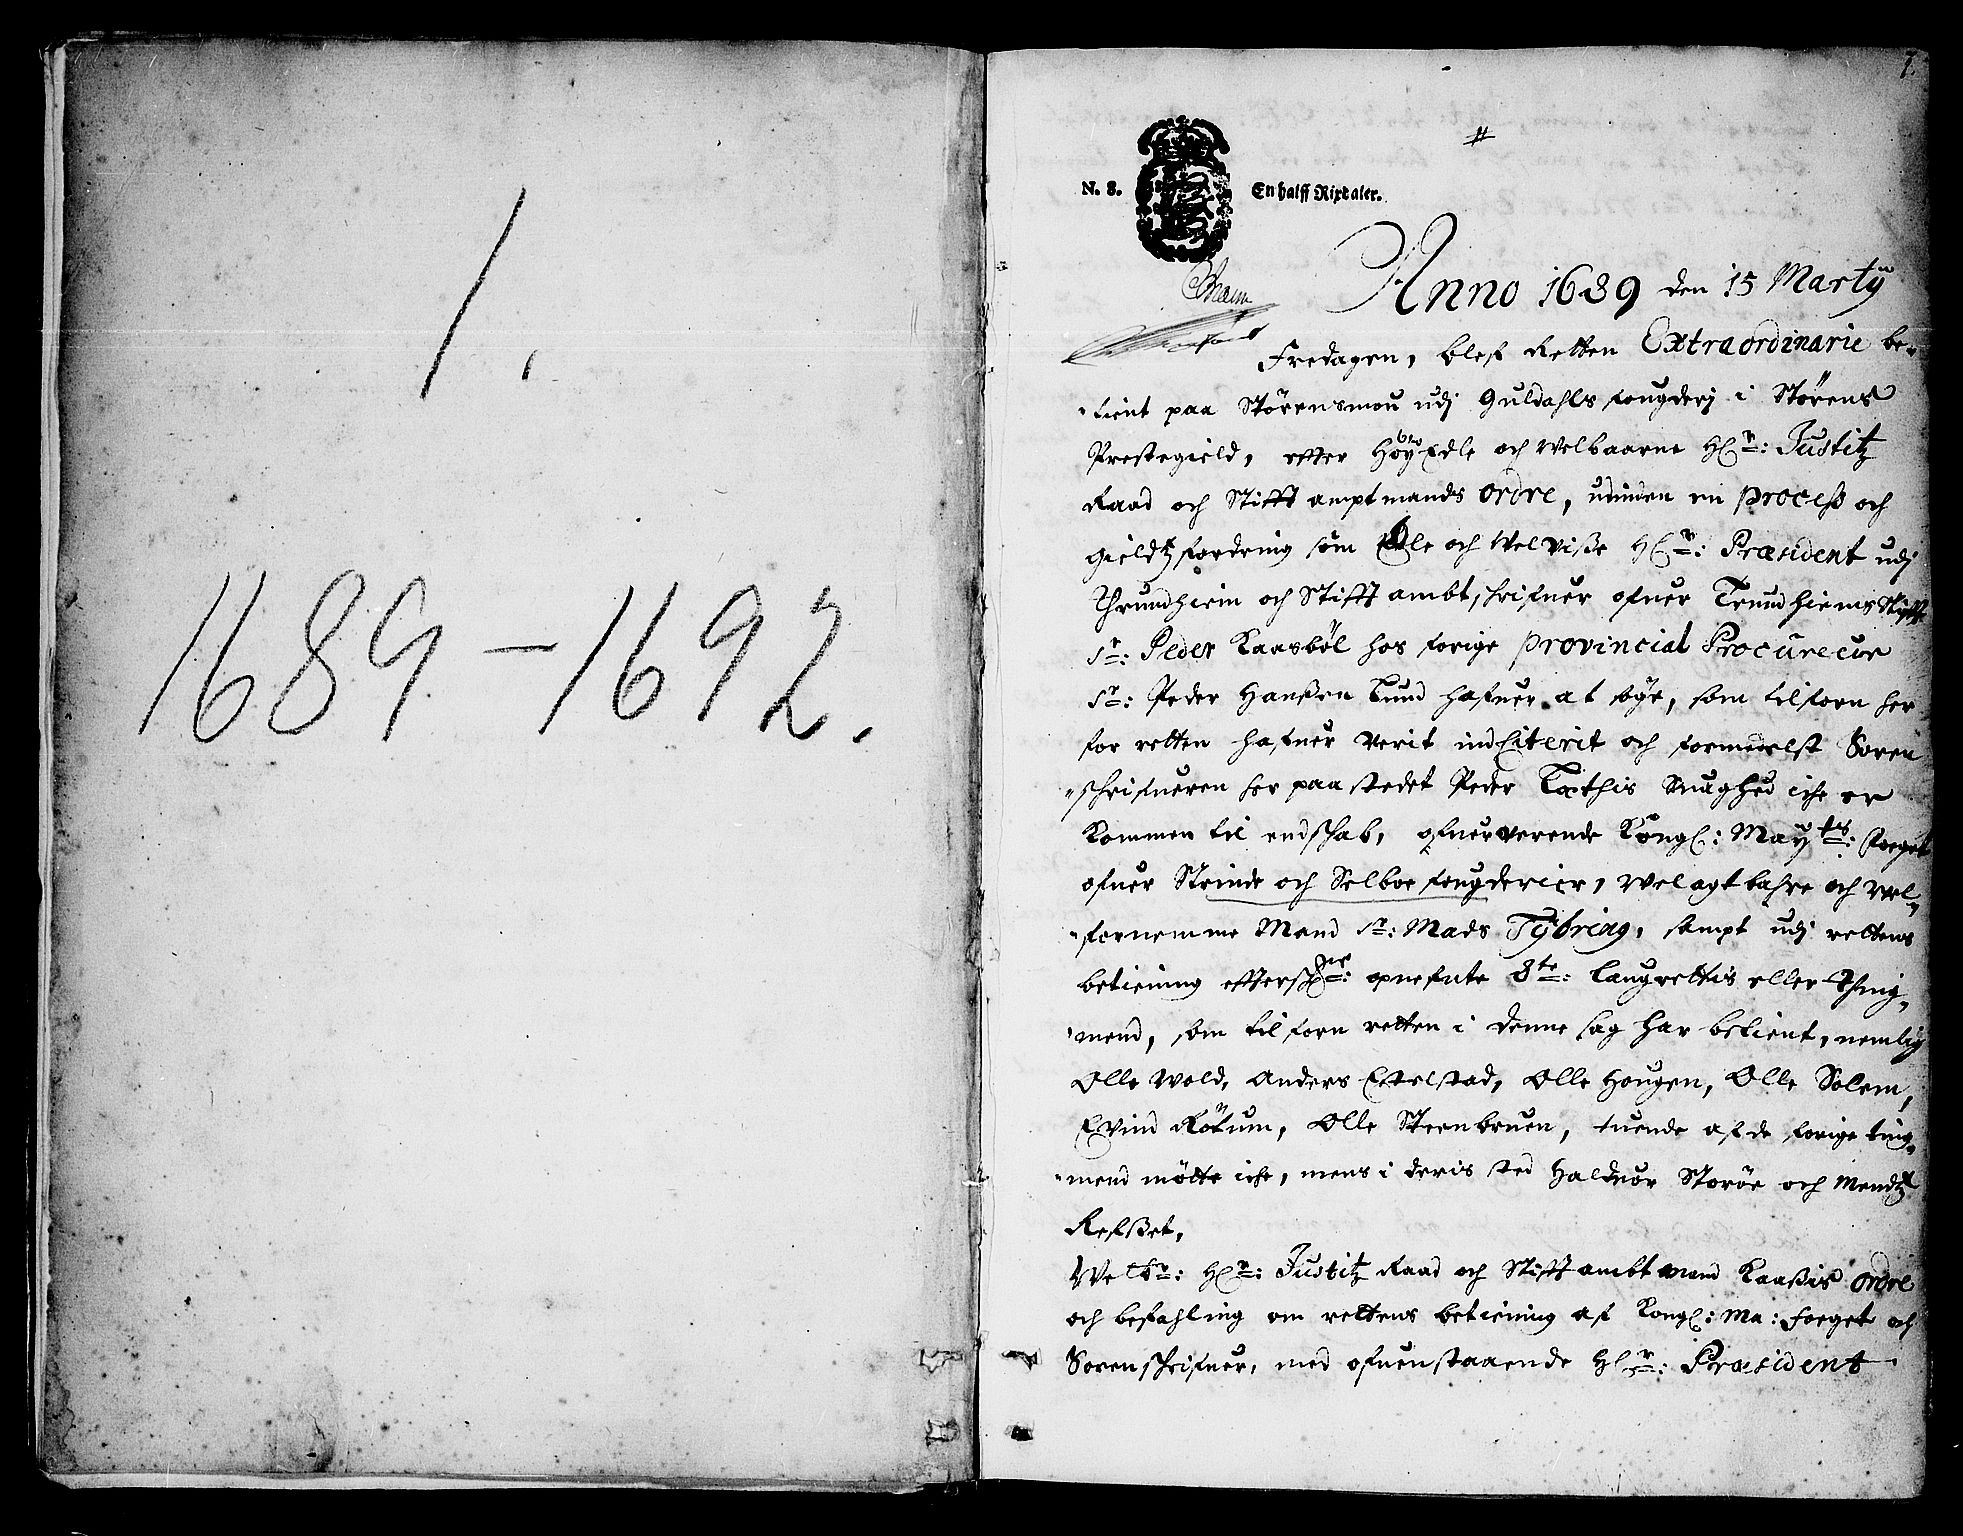 1.
1689 - 1692.
1.
#
N. 8. En halff Rixdaler.
Anno 1689 den 15 Martij
Fredagen, blef Retten Extraordinarie be-
tient paa Störensmou udj Guldahls fougderj i Störens
Prestegield, effter HöyEdle och Welbaarne Hr: Justitz
Raad och Stifft amptmands ordre, udinden en process och
gieldtz fordring som Edle och Welviße Hr: Præsident udj
Thrundhiem och Stifft ambtschrifuer ofuer Trundhiems Stifft
Sr: Peder Kaasböl hos forige provincial Procureur
Sr: Peder Hanßen Lund hafuer at söge, som tilforn her
for retten hafuer verit indCiterit och formedelst Soren
schrifueren her paa stedet Peder Tæthis Suaghed iche er
kommen til endschab, ofuerverende Kongl: Mayts: foeget
ofuer Strinde och Selboe fougderier, Welagtbahre och vel-
fornemme Mand Sr: Mads Tybring, sampt udj rettens
betiening effterschr: opnefnte 8te: Laugrettis eller Thing-
mend, som tilforn retten i denne sag har betient, nemlig
Olle Wold, Anders Eltelstad, Olle Hougen, Olle Solem,
Evind Rötum, Olle Steenbruen, tuende af de forige ting-
mend mötte iche, mens i deris sted Halduor Storöe och Mendtz
Refßet,
Welbr: Hr: Justitz Raad och Stifft ambtmand Kaaßis ordre
och befahling om rettens betiening af Kongl: Ma: foeget och
Sorenschrifuer, med ofuenstaaende Hr: Præsident